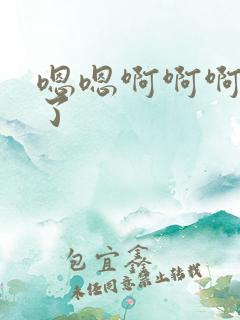 嗯嗯啊啊啊
了
包宜鑫
未经同意禁止转载